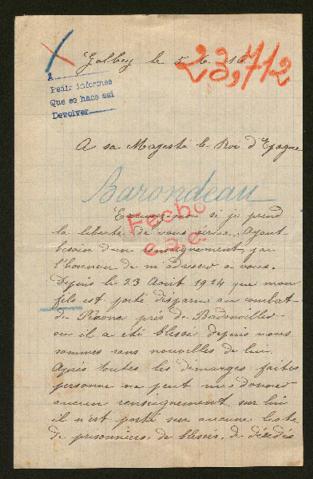 Golbey le 5 6 16
23,712
A
Pedir informes
Que se hace así
Devolver
A sa Majesté le Roi d'Espagne
Barondeau
Excusez-moi si je prend
la liberté de vous écrire. Ayant
besoin d'un renseignement j'ai
l'honneur de m'adresser a vous.
Hecho
Depuis le 23 Août 1914 que mon
fils est porté disparu au combat
de près de Badonviller
ou il a été blessé depuis nous
sommes sans nouvelles de lui.
Après toutes les démarges faites
personne ne peut nous donner
aucun renseignement sur lui
il n'est porté sur aucune liste
de prisonniers, de blessés, de décédés